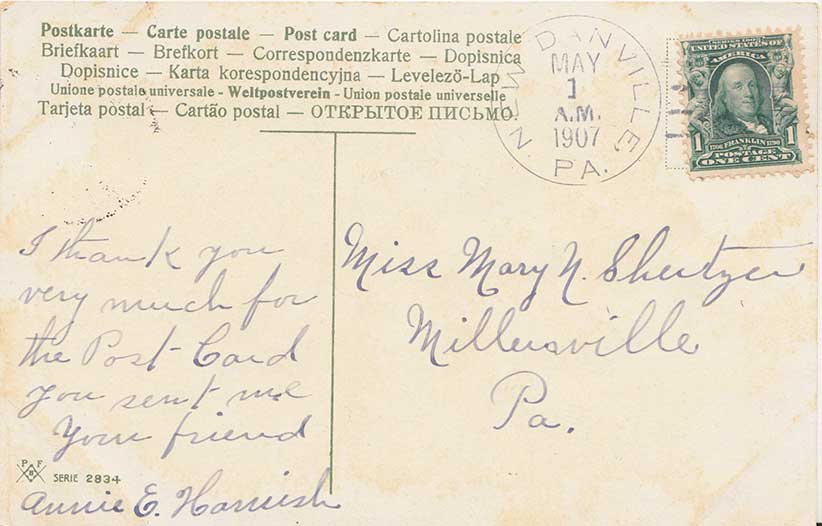 Postkarte — Carte postale — Post card — Cartolina postale
Briefkaart — Brefkort — Correspondenzkarte — Dopisnica
Dopisnice — Karta korespondencyjna — Levelező-Lap
Unione postale universale - Weltpostverein - Union postale universelle
Tarjeta postal — Cartão postal — ОТКРЫТОЕ ПИСЬМО.
NEW DANVILLE,
MAY
1
A.M.
1907
PA.
SERIES 1902
UNITED STATES OF
AMERICA
1 1706 FRANKLIN 1790 1
POSTAGE
ONE CENT
I thank you
very much for
the Post-Card
you sent me
Your friend
Annie E. Harnish
Miss Mary N. Shertzer
Millersville
Pa.
P F
B
SERIE 2834